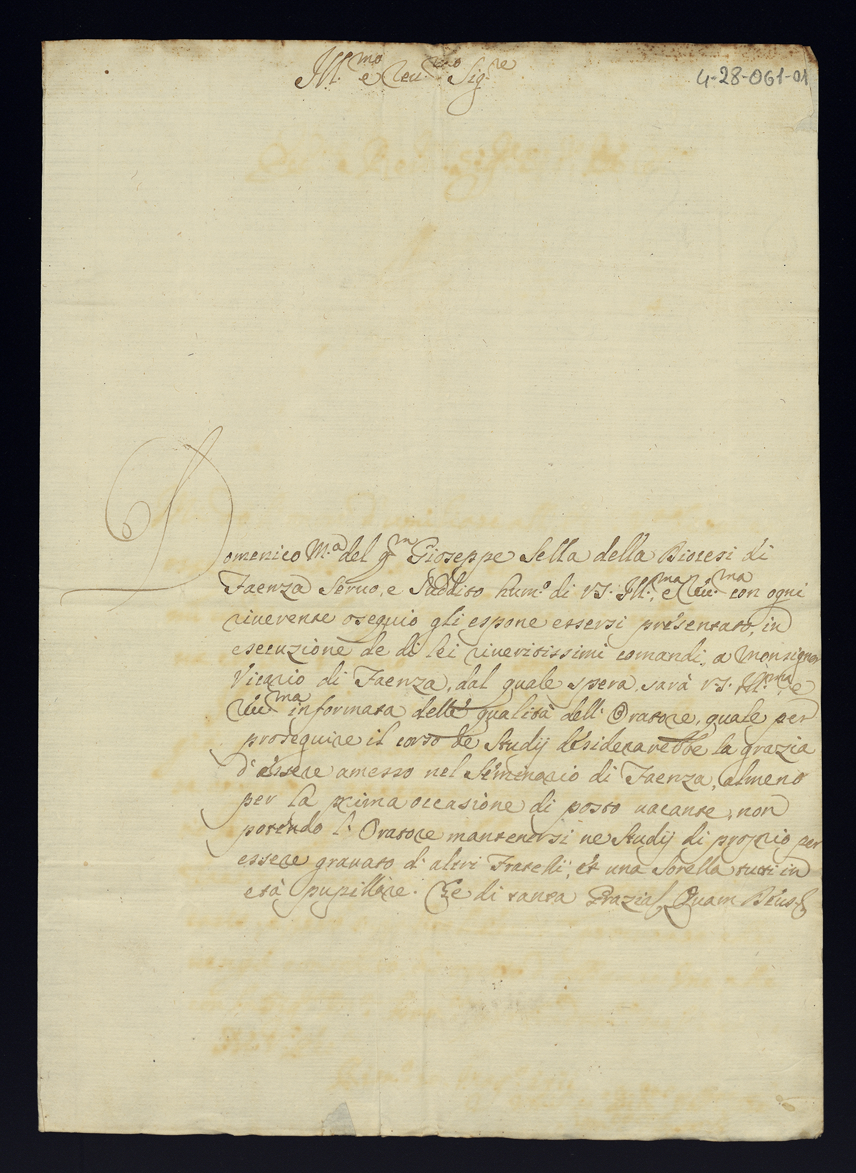 Ill.mo e Reu.mo Sig.re
4-28-061-01
Domenico M.a del qm Gioseppe Sella della Diocesi di
Faenza Seruo, e Suddito hum.o di V.S. Ill.ma, e Reu.ma con ogni
riuerente ossequio gli espone essersi presentato, in
esecuzione de di lei riueritissimi comandi, a Monsignor
Vicario di Faenza, dal quale spera, sarà V.S. Ill.ma, e
Reu.ma informata delle qualità dell' Oratore, quale per
proseguire il corso de Studij desiderarebbe la grazia
d'essere amesso nel Seminario di Faenza, almeno
per la prima occasione di posto vacante, non
potendo l' Oratore mantenersi ne Studij di proprio per
essere gravato d' altri Fratelli, et una Sorella tutti in
età pupillare. Che di tanta Grazia, Quam Deus